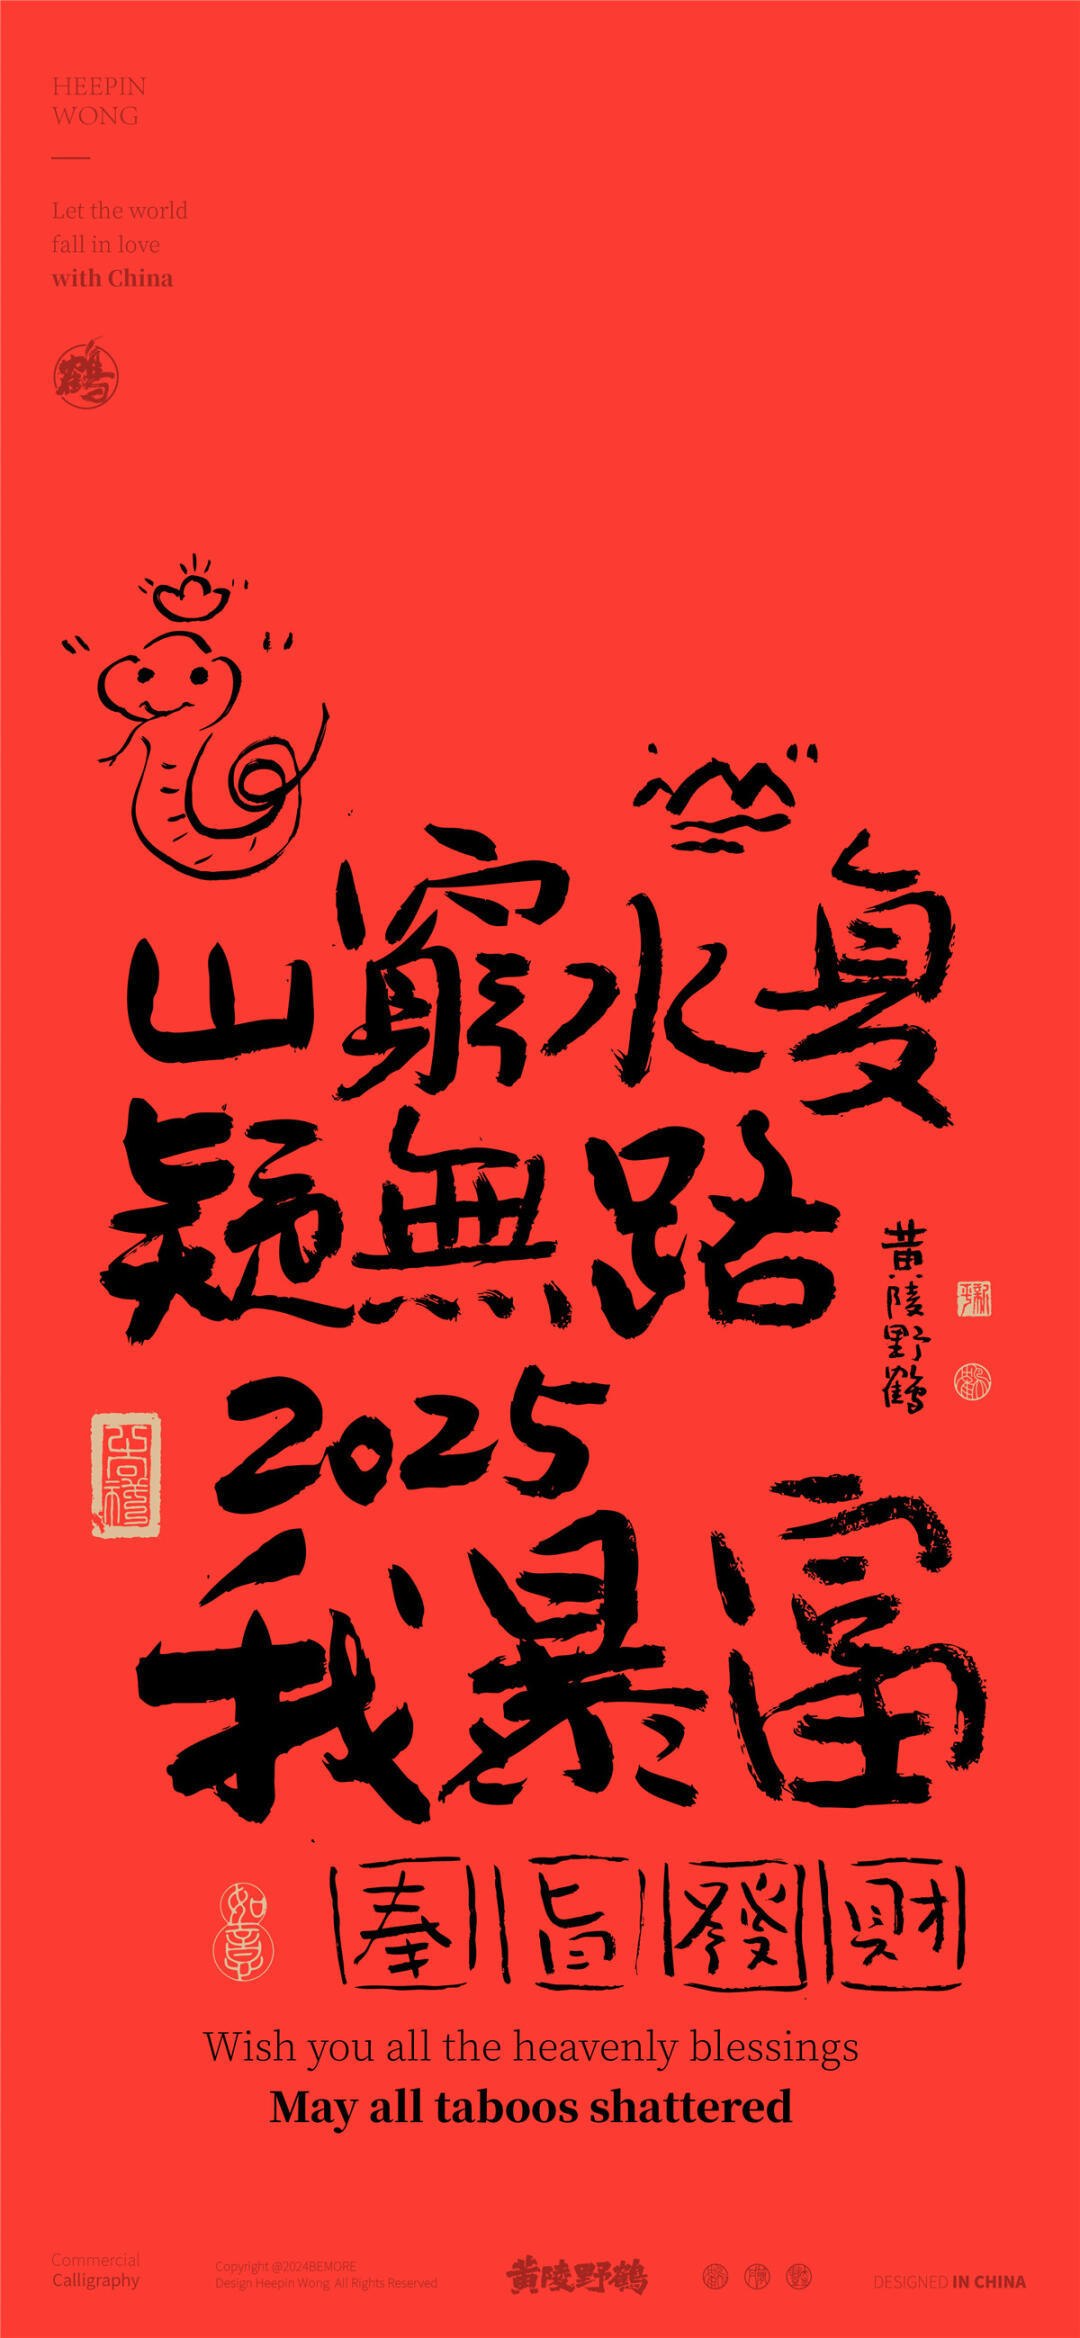 HEEPIN
WONG
Let the world
fall in love
with China
鶴
山窮水复
疑無路
黄陵野鶴
2025
我暴富
如意
奉旨發財
Wish you all the heavenly blessings
May all taboos shattered
Commercial
Calligraphy
Copyright @2024BEMORE
Design Heepin Wong All Rights Reserved
黄陵野鶴
DESIGNED IN CHINA